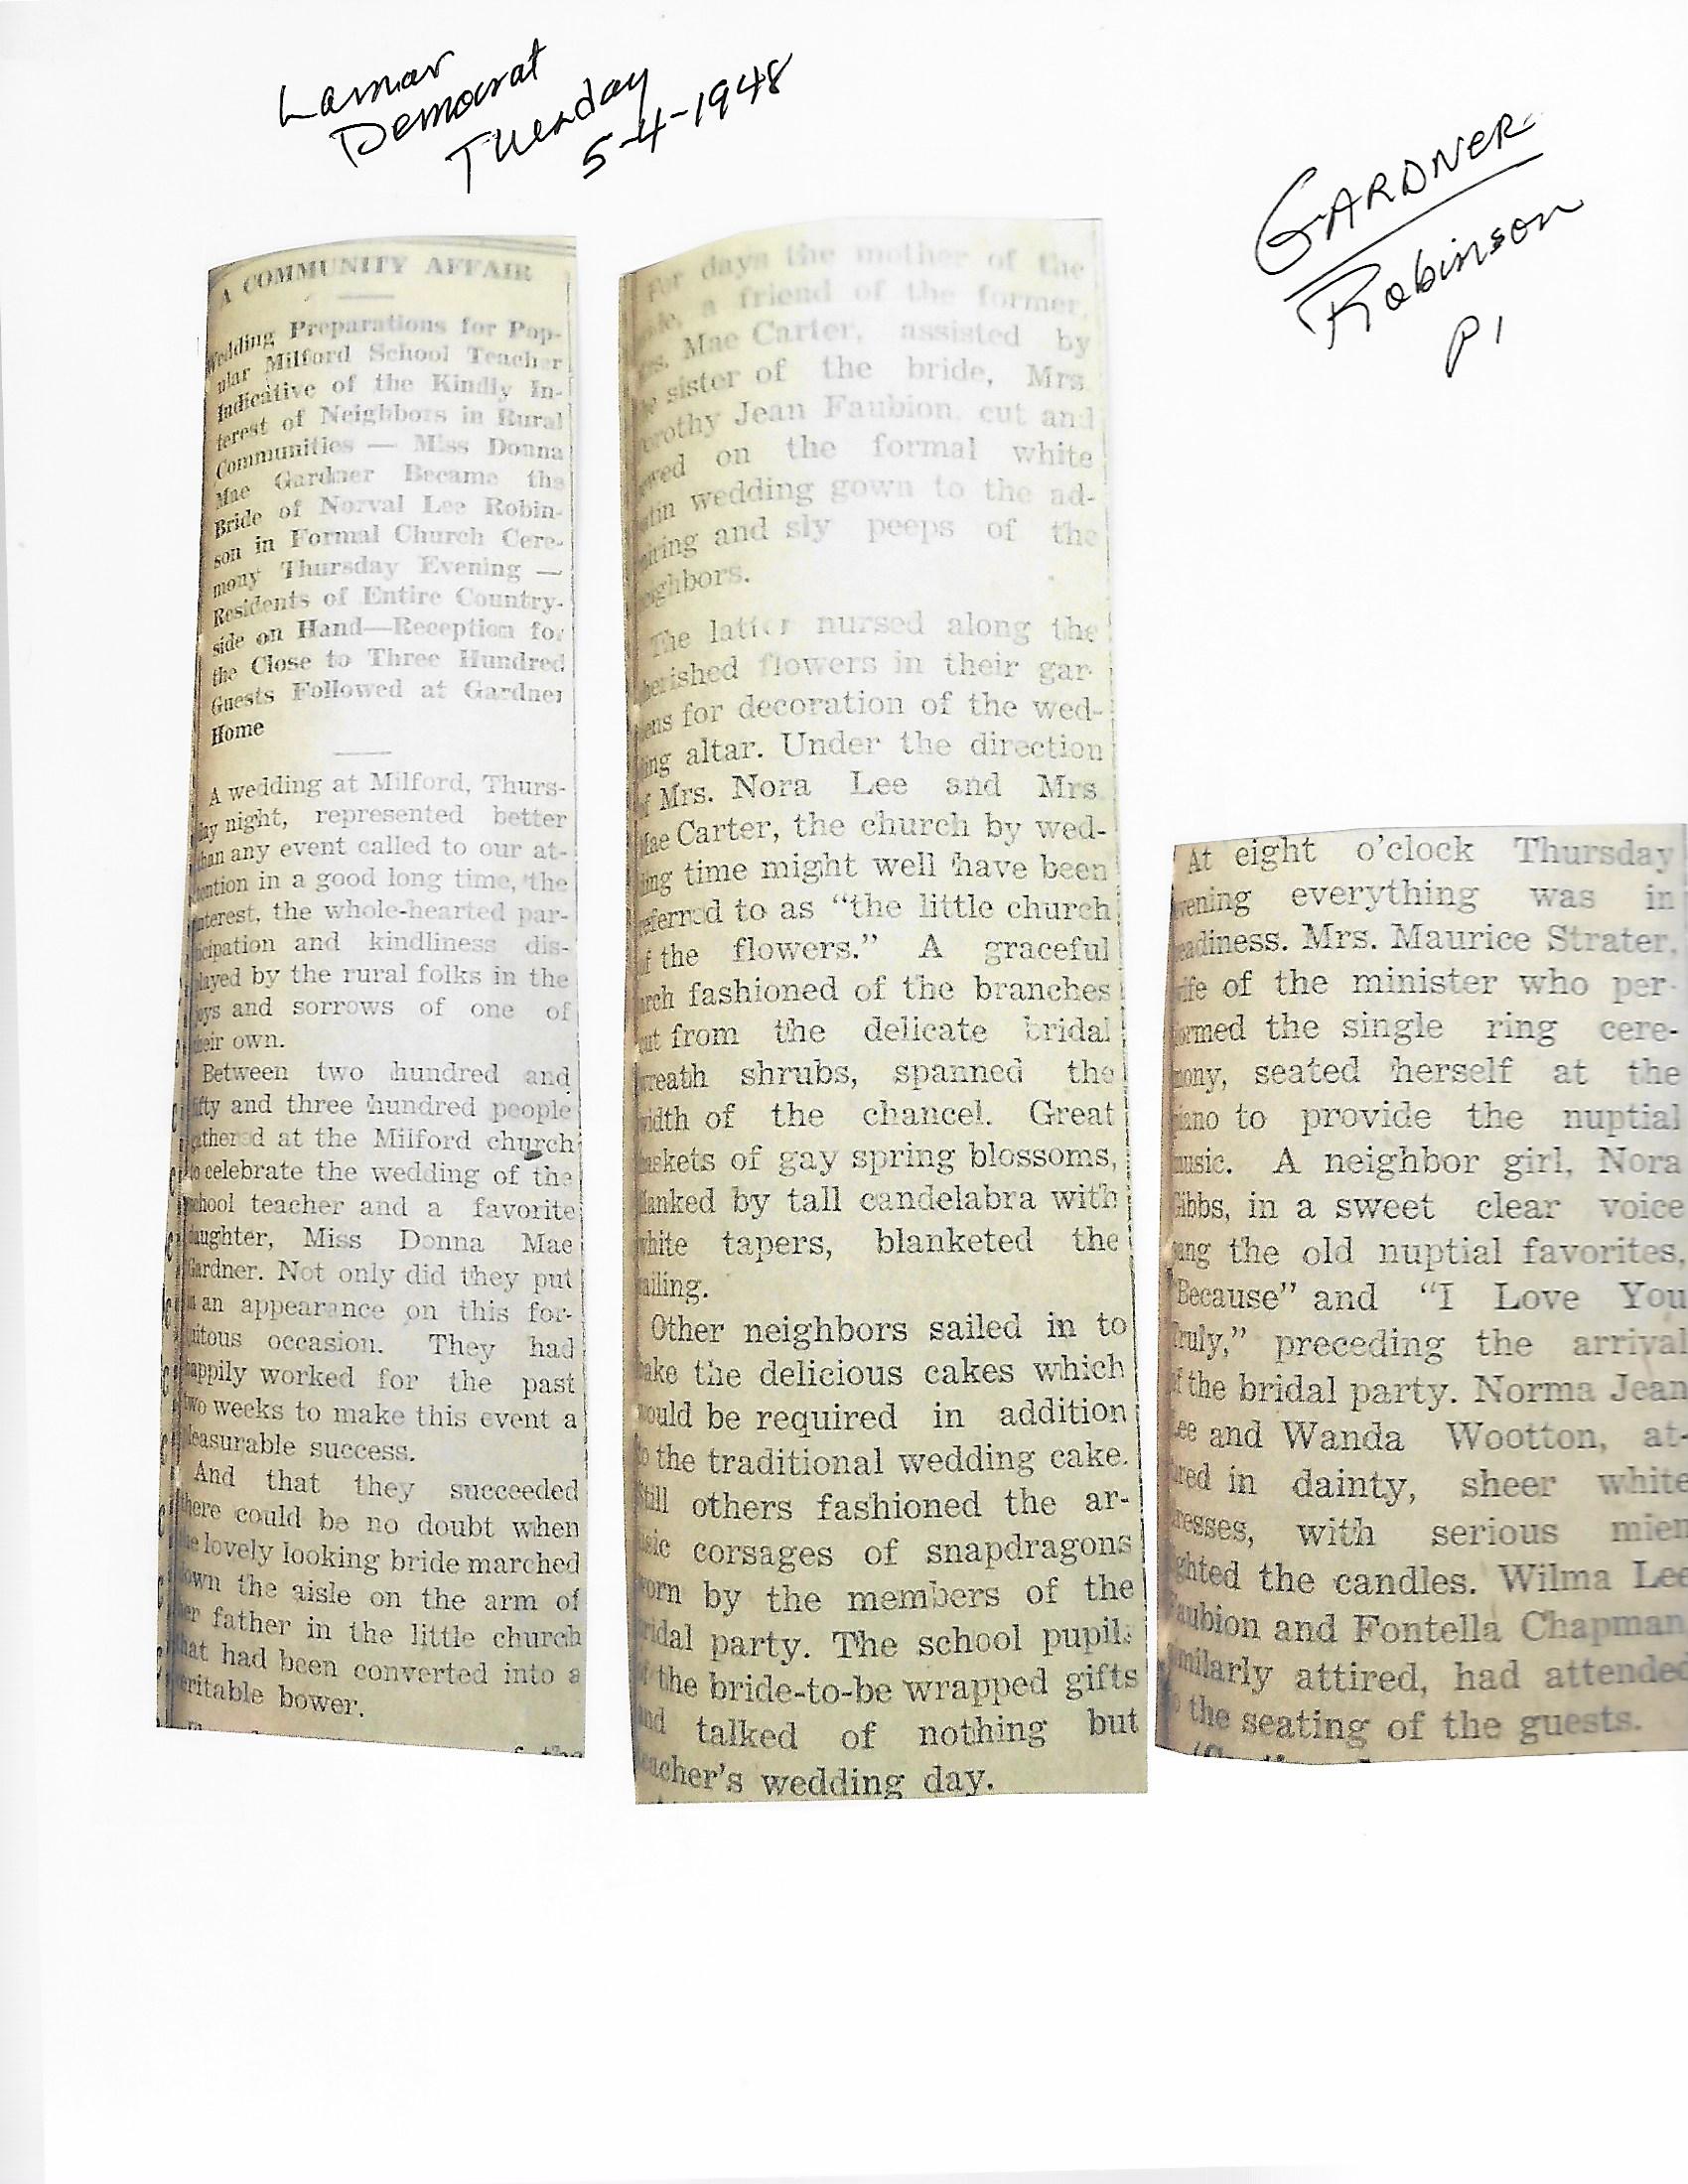 Lamar
Democrat
Tuesday
5-4-1948
GARDNER
Robinson
P1
A COMMUNITY AFFAIR
Wedding Preparations for Pop-
ular Milford School Teacher
Indicative of the Kindly In-
terest of Neighbors in Rural
Communities — Miss Donna
Mae Gardner Became the
Bride of Norval Lee Robin-
son in Formal Church Cere-
mony Thursday Evening —
Residents of Entire Country-
side on Hand—Reception for
the Close to Three Hundred
Guests Followed at Gardner
Home
A wedding at Milford, Thurs-
ay night, represented better
than any event called to our at-
tention in a good long time, the
nterest, the whole-hearted par-
icipation and kindliness dis-
layed by the rural folks in the
oys and sorrows of one of
heir own.
Between two hundred and
ifty and three hundred people
athered at the Milford church
to celebrate the wedding of the
chool teacher and a favorite
aughter, Miss Donna Mae
Gardner. Not only did they put
n an appearance on this for-
uitous occasion. They had
appily worked for the past
two weeks to make this event a
leasurable success.
And that they succeeded
there could be no doubt when
he lovely looking bride marched
own the aisle on the arm of
er father in the little church
hat had been converted into a
eritable bower.
For days the mother of the
ride, a friend of the former,
rs. Mae Carter, assisted by
he sister of the bride, Mrs.
orothy Jean Faubion, cut and
ewed on the formal white
atin wedding gown to the ad-
iring and sly peeps of the
eighbors.
The latter nursed along the
herished flowers in their gar-
ens for decoration of the wed-
ing altar. Under the direction
f Mrs. Nora Lee and Mrs.
Mae Carter, the church by wed-
ing time might well have been
eferred to as "the little church
f the flowers." A graceful
arch fashioned of the branches
ut from the delicate bridal
wreath shrubs, spanned the
idth of the chancel. Great
askets of gay spring blossoms,
lanked by tall candelabra with
white tapers, blanketed the
ailing.
Other neighbors sailed in to
ake the delicious cakes which
would be required in addition
to the traditional wedding cake.
Still others fashioned the ar-
isic corsages of snapdragons
worn by the members of the
ridal party. The school pupils
f the bride-to-be wrapped gifts
and talked of nothing but
eacher's wedding day.
At eight o'clock Thursday
vening everything was in
eadiness. Mrs. Maurice Strater,
ife of the minister who per-
ormed the single ring cere-
ony, seated herself at the
iano to provide the nuptial
usic. A neighbor girl, Nora
ibbs, in a sweet clear voice
ang the old nuptial favorites,
"Because" and "I Love You
Truly," preceding the arrival
f the bridal party. Norma Jean
Lee and Wanda Wootton, at-
ired in dainty, sheer white
resses, with serious mien
ighted the candles. Wilma Lee
Faubion and Fontella Chapman,
imilarly attired, had attended
o the seating of the guests.